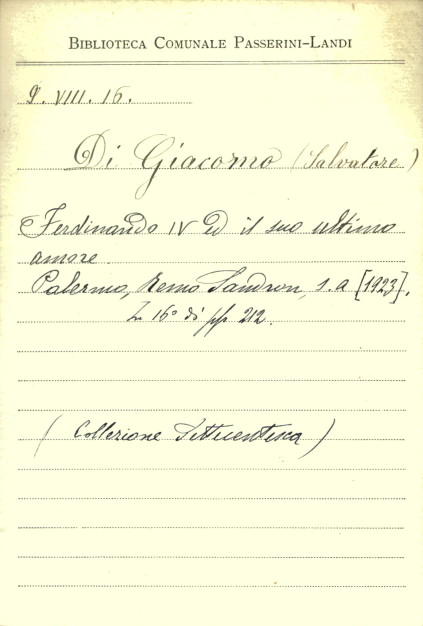 BIBLIOTECA COMUNALE PASSERINI-LANDI
2. VIII. 16.
Di Giacomo (Salvatore)
Ferdinando IV ed il suo ultimo
amore
Palermo, Remo Sandron, s. a [1923].
In 16° di pp 212.
(Collezione Settecentesca)